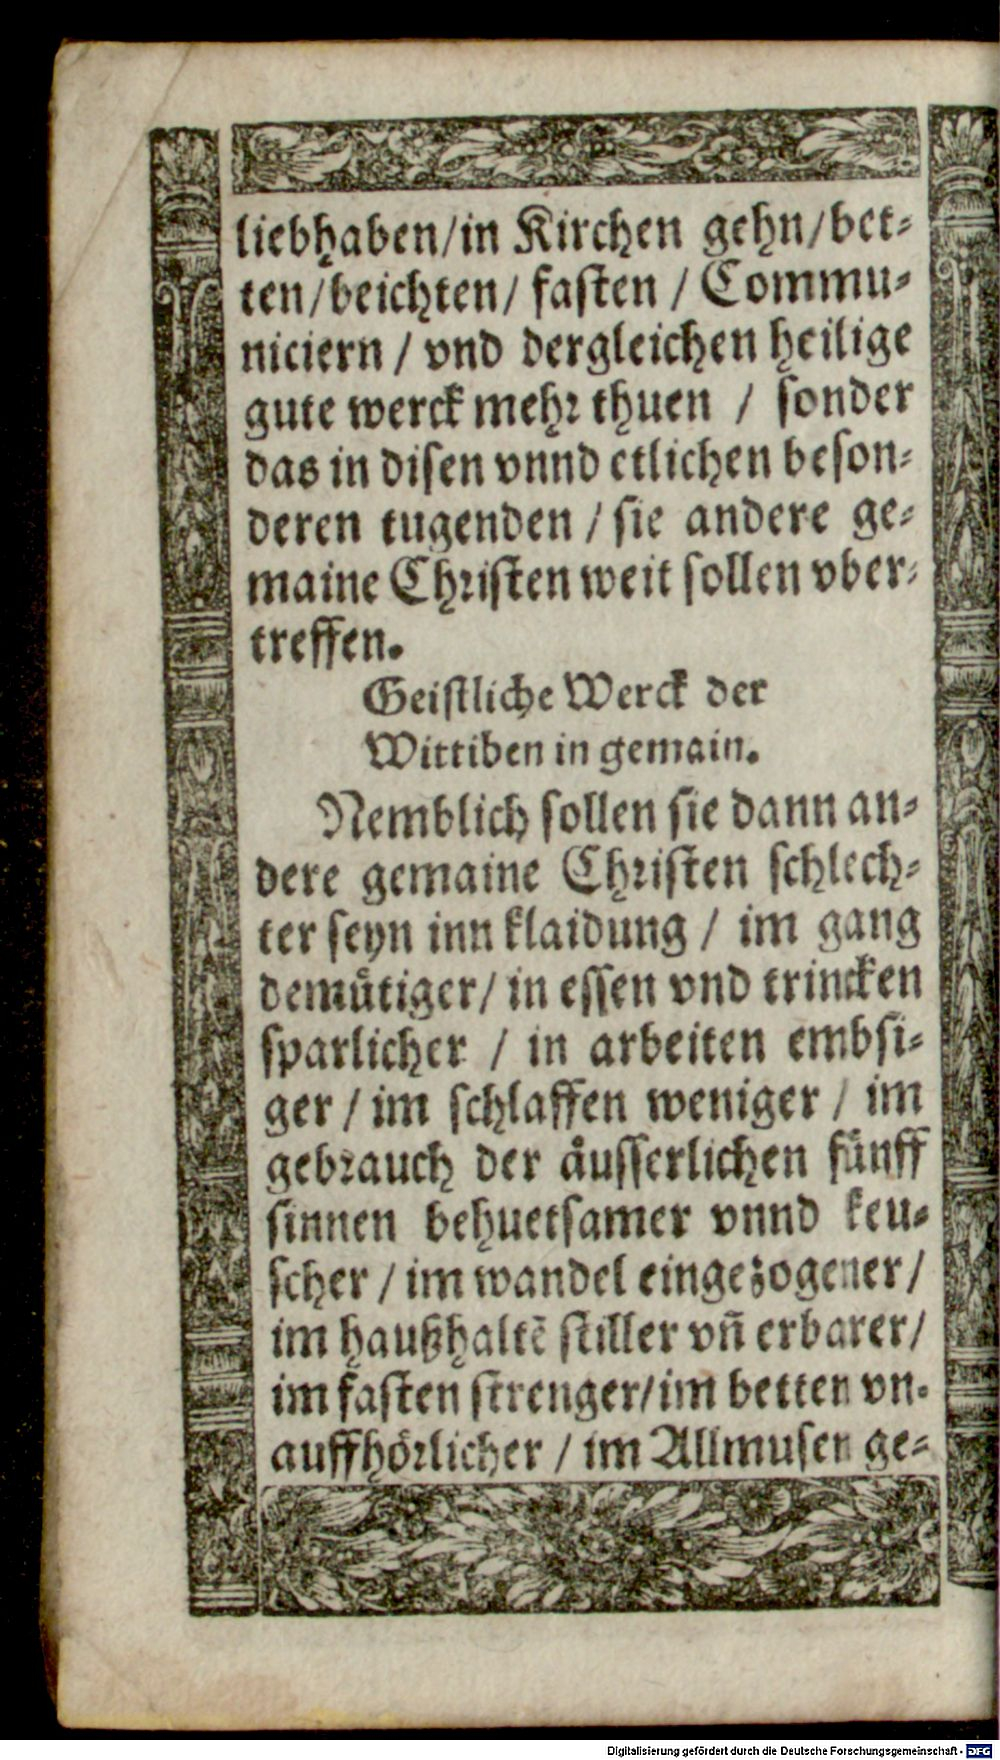 liebhaben/in Kirchen gehn/bet⸗
ten/beichten/ fasten / Commu⸗
niciern / vnd dergleichen heilige
gute werck mehr thuen / sonder
das in disen vnnd etlichen beson⸗
deren tugenden / sie andere ge⸗
maine Christen weit sollen vber⸗
treffen.
Geistliche Werck der
Wittiben in gemain.
Nemblich sollen sie dann an⸗
dere gemaine Christen schlech⸗
ter seyn inn klaidung / im gang
demuͤtiger/ in essen vnd trincken
sparlicher / in arbeiten embsi⸗
ger / im schlaffen weniger / im
gebrauch der aͤusserlichen fuͤnff
sinnen behuetsamer vnnd keu⸗
scher / im wandel eingezogener /
im haußhaltẽ stiller vñ erbarer/
im fasten strenger/im betten vn⸗
auffhoͤrlicher / im Allmusen ge⸗
Digitalisierung gefördert durch die Deutsche Forschungsgemeinschaft - DFG